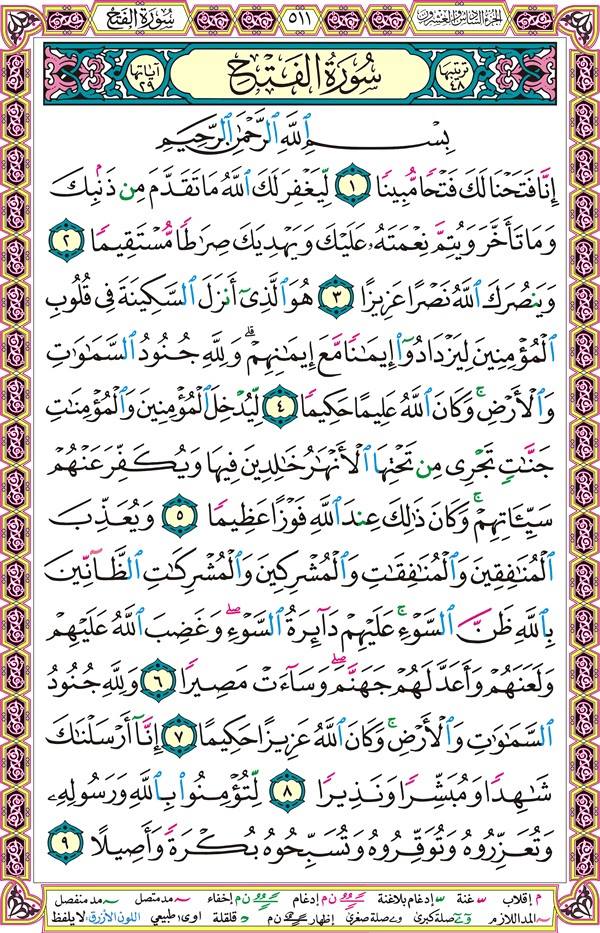 الجزء السادس والعشرون ٥١١ سورة الفتح
ترتيبها ٤٨ سُورَةُ الْفَتْحِ آياتها ٢٩
بِسْمِ ٱللَّهِ ٱلرَّحْمَٰنِ ٱلرَّحِيمِ
إِنَّا فَتَحْنَا لَكَ فَتْحًا مُّبِينًا ١ لِّيَغْفِرَ لَكَ ٱللَّهُ مَا تَقَدَّمَ مِن ذَنۢبِكَ
وَمَا تَأَخَّرَ وَيُتِمَّ نِعْمَتَهُۥ عَلَيْكَ وَيَهْدِيَكَ صِرَٰطًا مُّسْتَقِيمًا ٢
وَيَنصُرَكَ ٱللَّهُ نَصْرًا عَزِيزًا ٣ هُوَ ٱلَّذِىٓ أَنزَلَ ٱلسَّكِينَةَ فِى قُلُوبِ
ٱلْمُؤْمِنِينَ لِيَزْدَادُوٓا۟ إِيمَٰنًا مَّعَ إِيمَٰنِهِمْ ۗ وَلِلَّهِ جُنُودُ ٱلسَّمَٰوَٰتِ
وَٱلْأَرْضِ ۚ وَكَانَ ٱللَّهُ عَلِيمًا حَكِيمًا ٤ لِّيُدْخِلَ ٱلْمُؤْمِنِينَ وَٱلْمُؤْمِنَٰتِ
جَنَّٰتٍ تَجْرِى مِن تَحْتِهَا ٱلْأَنْهَٰرُ خَٰلِدِينَ فِيهَا وَيُكَفِّرَ عَنْهُمْ
سَيِّـَٔاتِهِمْ ۚ وَكَانَ ذَٰلِكَ عِندَ ٱللَّهِ فَوْزًا عَظِيمًا ٥ وَيُعَذِّبَ
ٱلْمُنَٰفِقِينَ وَٱلْمُنَٰفِقَٰتِ وَٱلْمُشْرِكِينَ وَٱلْمُشْرِكَٰتِ ٱلظَّآنِّينَ
بِٱللَّهِ ظَنَّ ٱلسَّوْءِ ۚ عَلَيْهِمْ دَآئِرَةُ ٱلسَّوْءِ ۖ وَغَضِبَ ٱللَّهُ عَلَيْهِمْ
وَلَعَنَهُمْ وَأَعَدَّ لَهُمْ جَهَنَّمَ ۖ وَسَآءَتْ مَصِيرًا ٦ وَلِلَّهِ جُنُودُ
ٱلسَّمَٰوَٰتِ وَٱلْأَرْضِ ۚ وَكَانَ ٱللَّهُ عَزِيزًا حَكِيمًا ٧ إِنَّآ أَرْسَلْنَٰكَ
شَٰهِدًا وَمُبَشِّرًا وَنَذِيرًا ٨ لِّتُؤْمِنُوا۟ بِٱللَّهِ وَرَسُولِهِۦ
وَتُعَزِّرُوهُ وَتُوَقِّرُوهُ وَتُسَبِّحُوهُ بُكْرَةً وَأَصِيلًا ٩
م إقلاب غنة إدغام بلاغنة ن م إدغام ن م إخفاء مد متصل مد منفصل
المد اللازم صلة كبرى صلة صغرى إظهار ن م قلقلة اوى: طبيعي اللون الأزرق: لا يلفظ